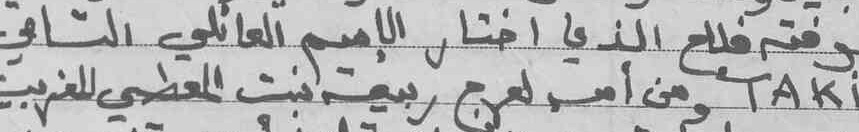 وفته فللع الذي اختار الإسم العائلي التاقي
TAKI ومن أمه لعرج ربيعة بنت المعطي للغربية